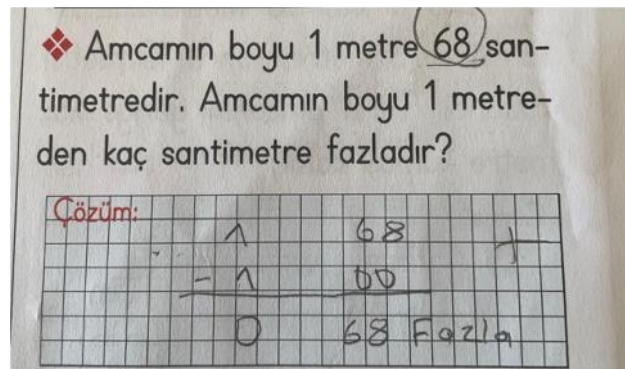 Amcamın boyu 1 metre 68 san-
timetredir. Amcamın boyu 1 metre-
den kaç santimetre fazladır?
Çözüm:
1 68 +
- 1 00
0 68 Fazla